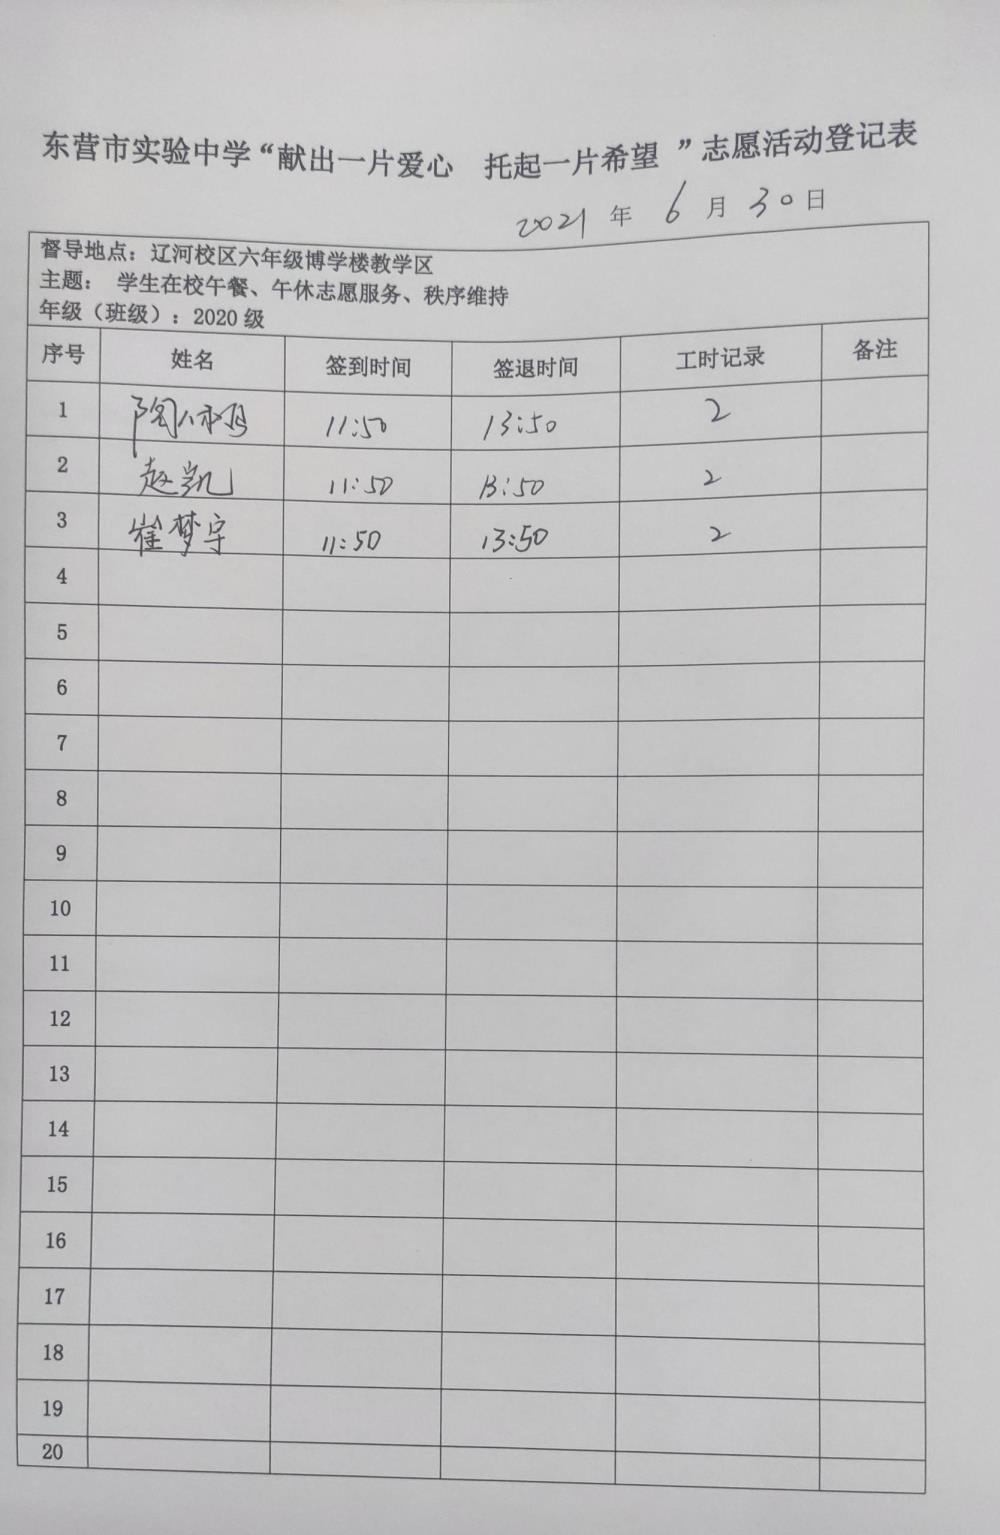 东营市实验中学“献出一片爱心 托起一片希望 ”志愿活动登记表
2021 年 6 月 30 日
督导地点：辽河校区六年级博学楼教学区
主题： 学生在校午餐、午休志愿服务、秩序维持
年级（班级）：2020 级
序号 姓名 签到时间 签退时间 工时记录 备注
1 11:50 13:50 2
2 赵凯 11:50 13:50 2
3 崔梦宇 11:50 13:50 2
4
5
6
7
8
9
10
11
12
13
14
15
16
17
18
19
20